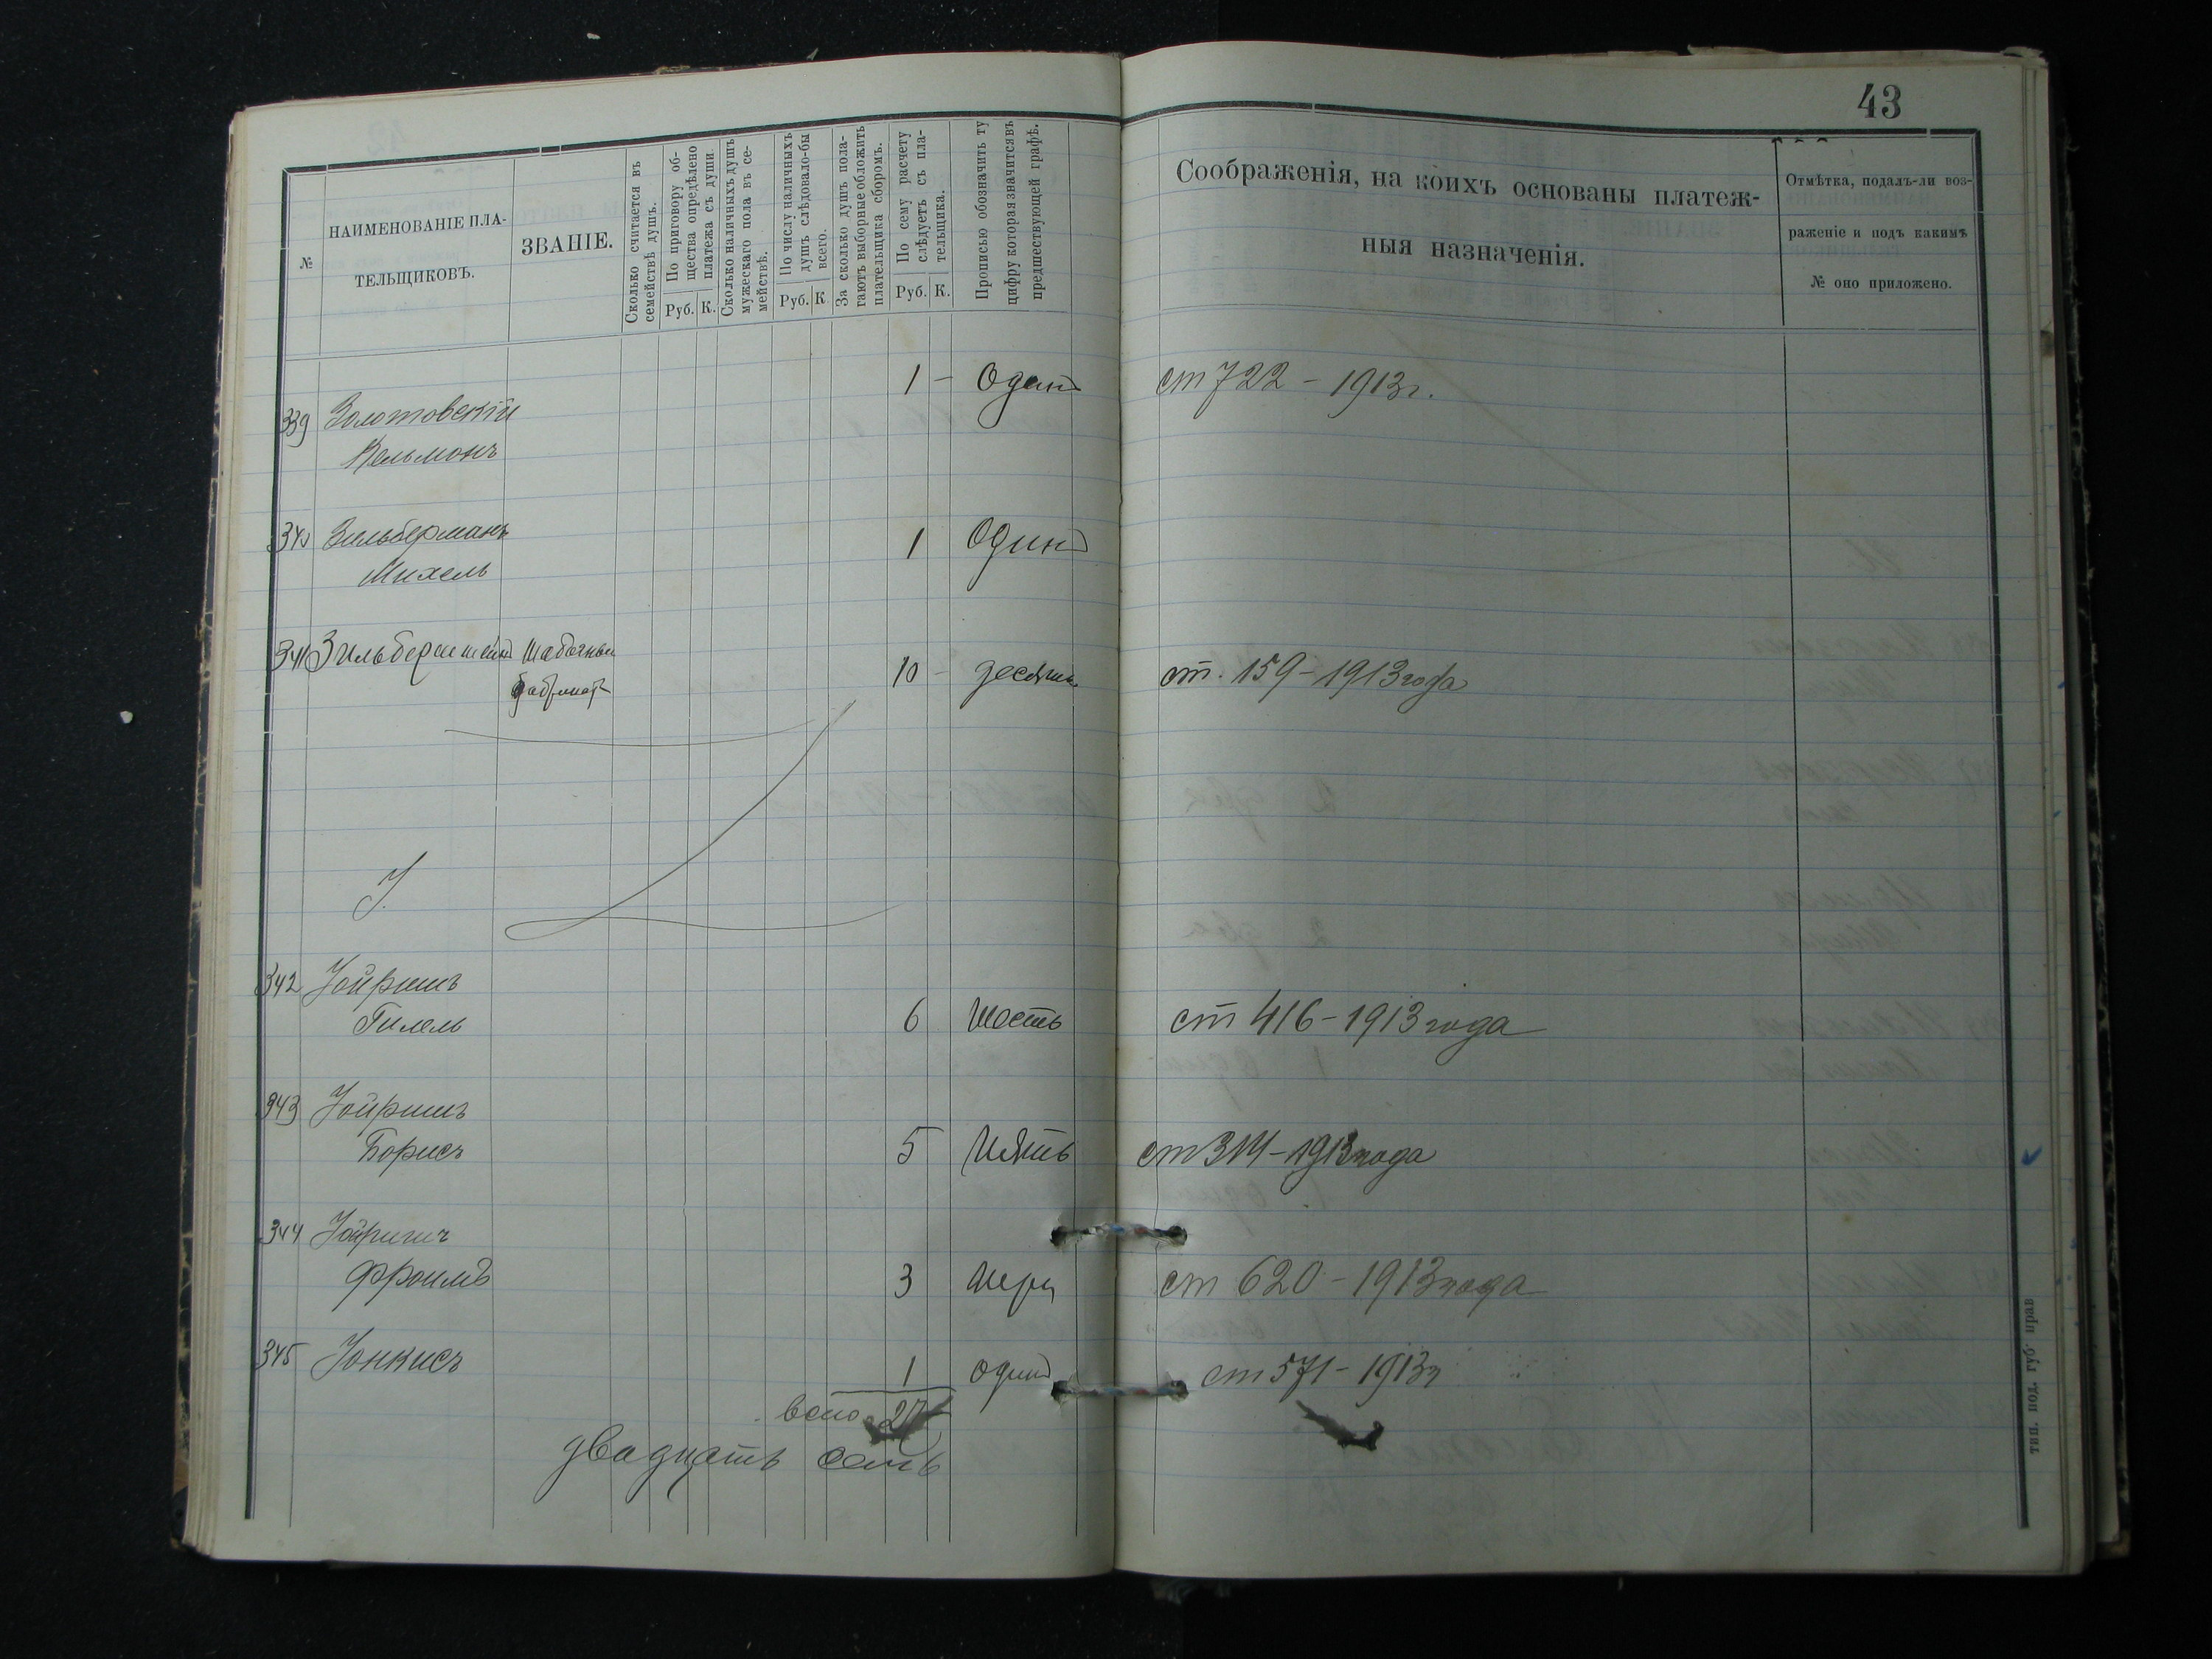 43
№
НАИМЕНОВАНІЕ ПЛА-
ТЕЛЬЩИКОВЪ.
ЗВАНІЕ.
Сколько считается въ
семействѣ душъ.
По приговору об-
щества опредѣлено
платежа съ души.
Руб. К.
Сколько наличныхъ душъ
мужескаго пола въ се-
мействѣ.
По числу наличныхъ
душъ слѣдовало-бы
всего.
Руб. К.
За сколько душъ пола-
гаютъ выборные обложить
плательщика сборомъ.
По сему расчету
слѣдуетъ съ пла-
тельщика.
Руб. К.
Прописью обозначить ту
цифру которая значится въ
предшествующей графѣ.
Соображенія, на коихъ основаны платеж-
ныя назначенія.
Отмѣтка, подалъ-ли воз-
раженіе и подъ какимъ
№ оно приложено.
1 — Одинъ ст 722 – 1913г.
339 Золотовскій
Кельмонъ
340 Зильберманъ
Михель
1 Одинъ
341 Зильберштейнъ Табачный
фабрикантъ
10 — десять ст. 159 – 1913 года
І.
342 Іойришъ
Гилель 6 Шесть ст 416 – 1913 года
343 Іойришъ
Борисъ 5 Пять ст 314 – 1913 года
344 Іойришъ
Фроимъ 3 Три ст 620 – 1913 года
345 Іонкисъ 1 Одинъ ст 571 – 1913г
всего 27 —
двадцать семь
тип. под. губ прав